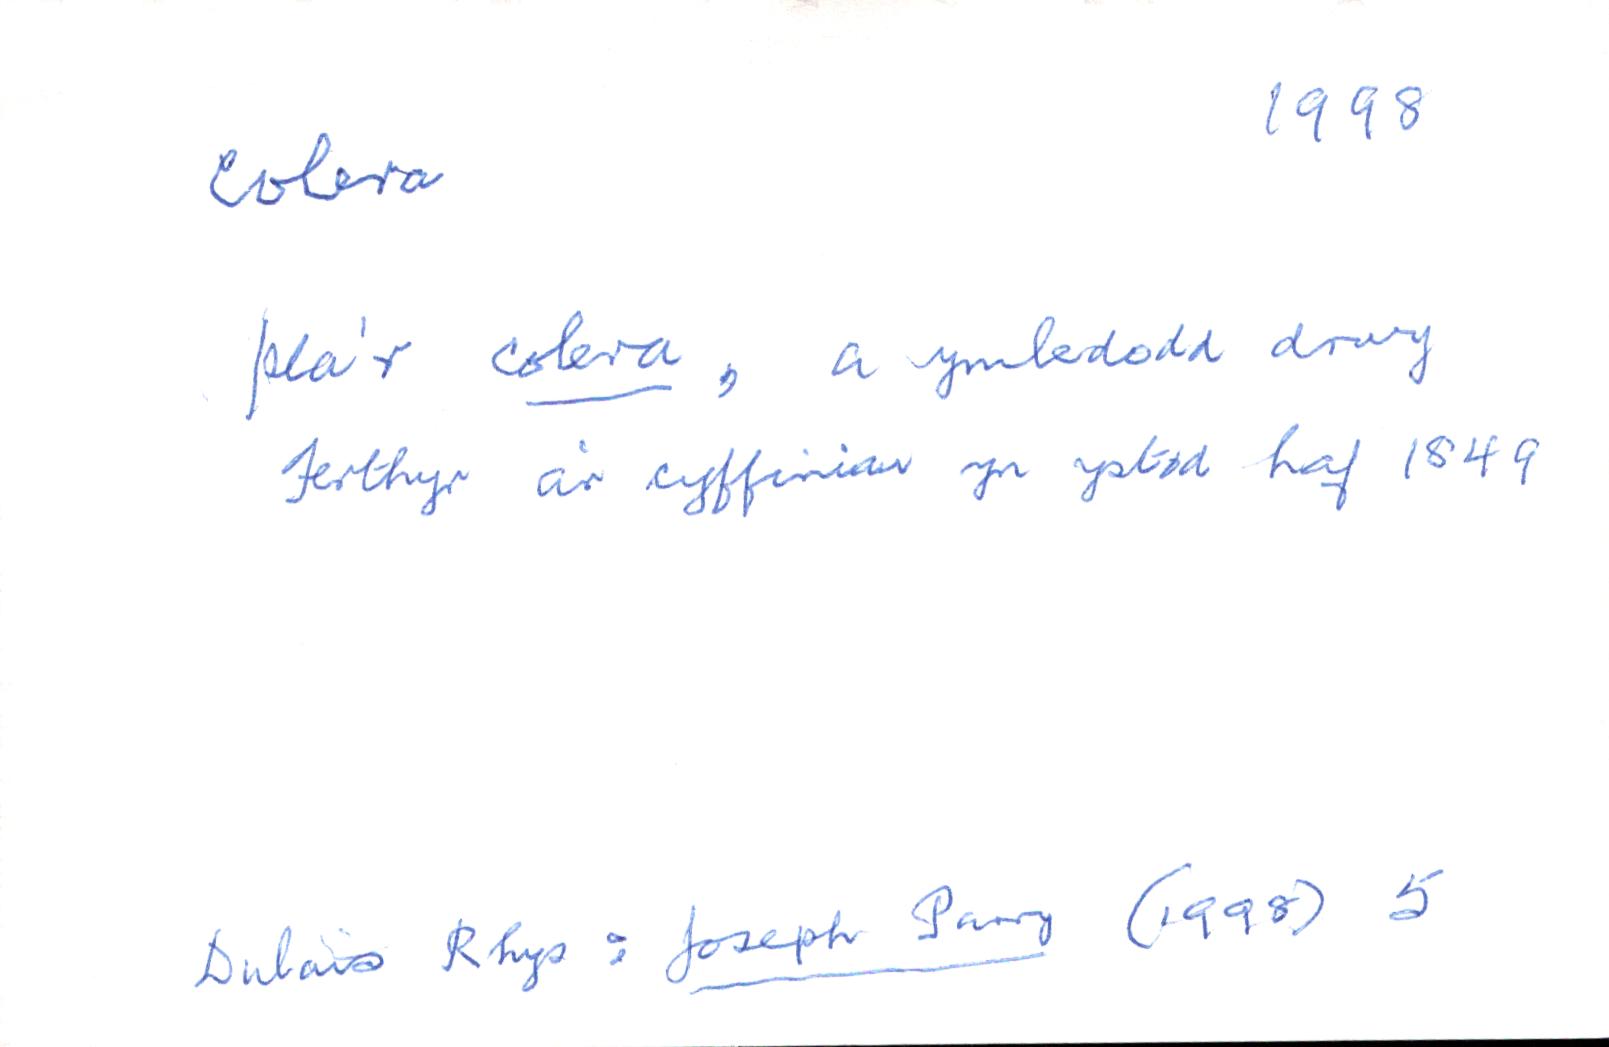 1998
colera
pla'r colera, a ymledodd drwy
Ferthyr a'r cyffiniau yn ystod haf 1849
Dulais Rhys : Joseph Parry (1998) 5